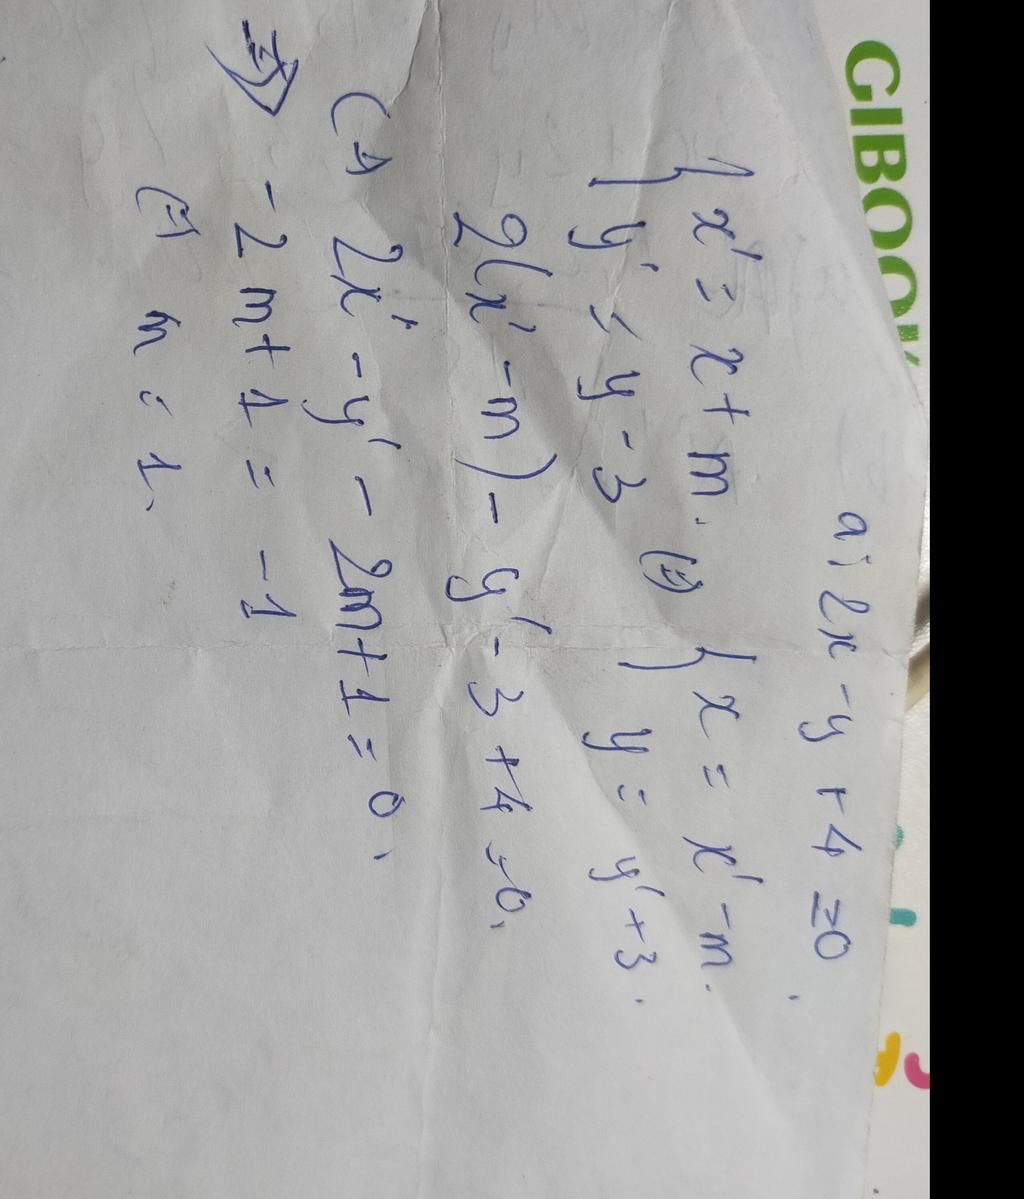 GIBOOK
a: 2x - y + 4 = 0.
{ x' = x + m. (=) { x = x' - m.
{ y' = y - 3 { y = y' + 3.
2(x' - m) - y' - 3 + 4 = 0.
(=) 2x' - y' - 2m + 1 = 0.
=> -2m + 1 = -1
(=) m = 1.